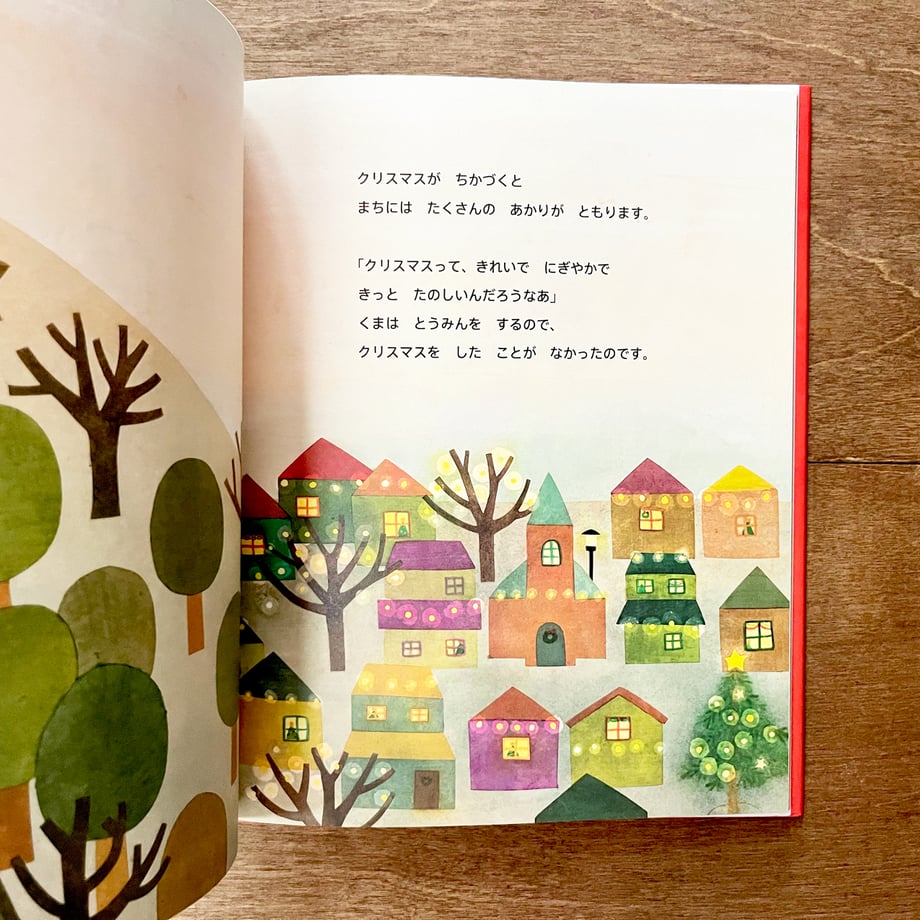 クリスマスが　ちかづくと
まちには　たくさんの　あかりが　ともります。
「クリスマスって、きれいで　にぎやかで
きっと　たのしいんだろうなあ」
くまは　とうみんを　するので、
クリスマスを　した　ことが　なかったのです。